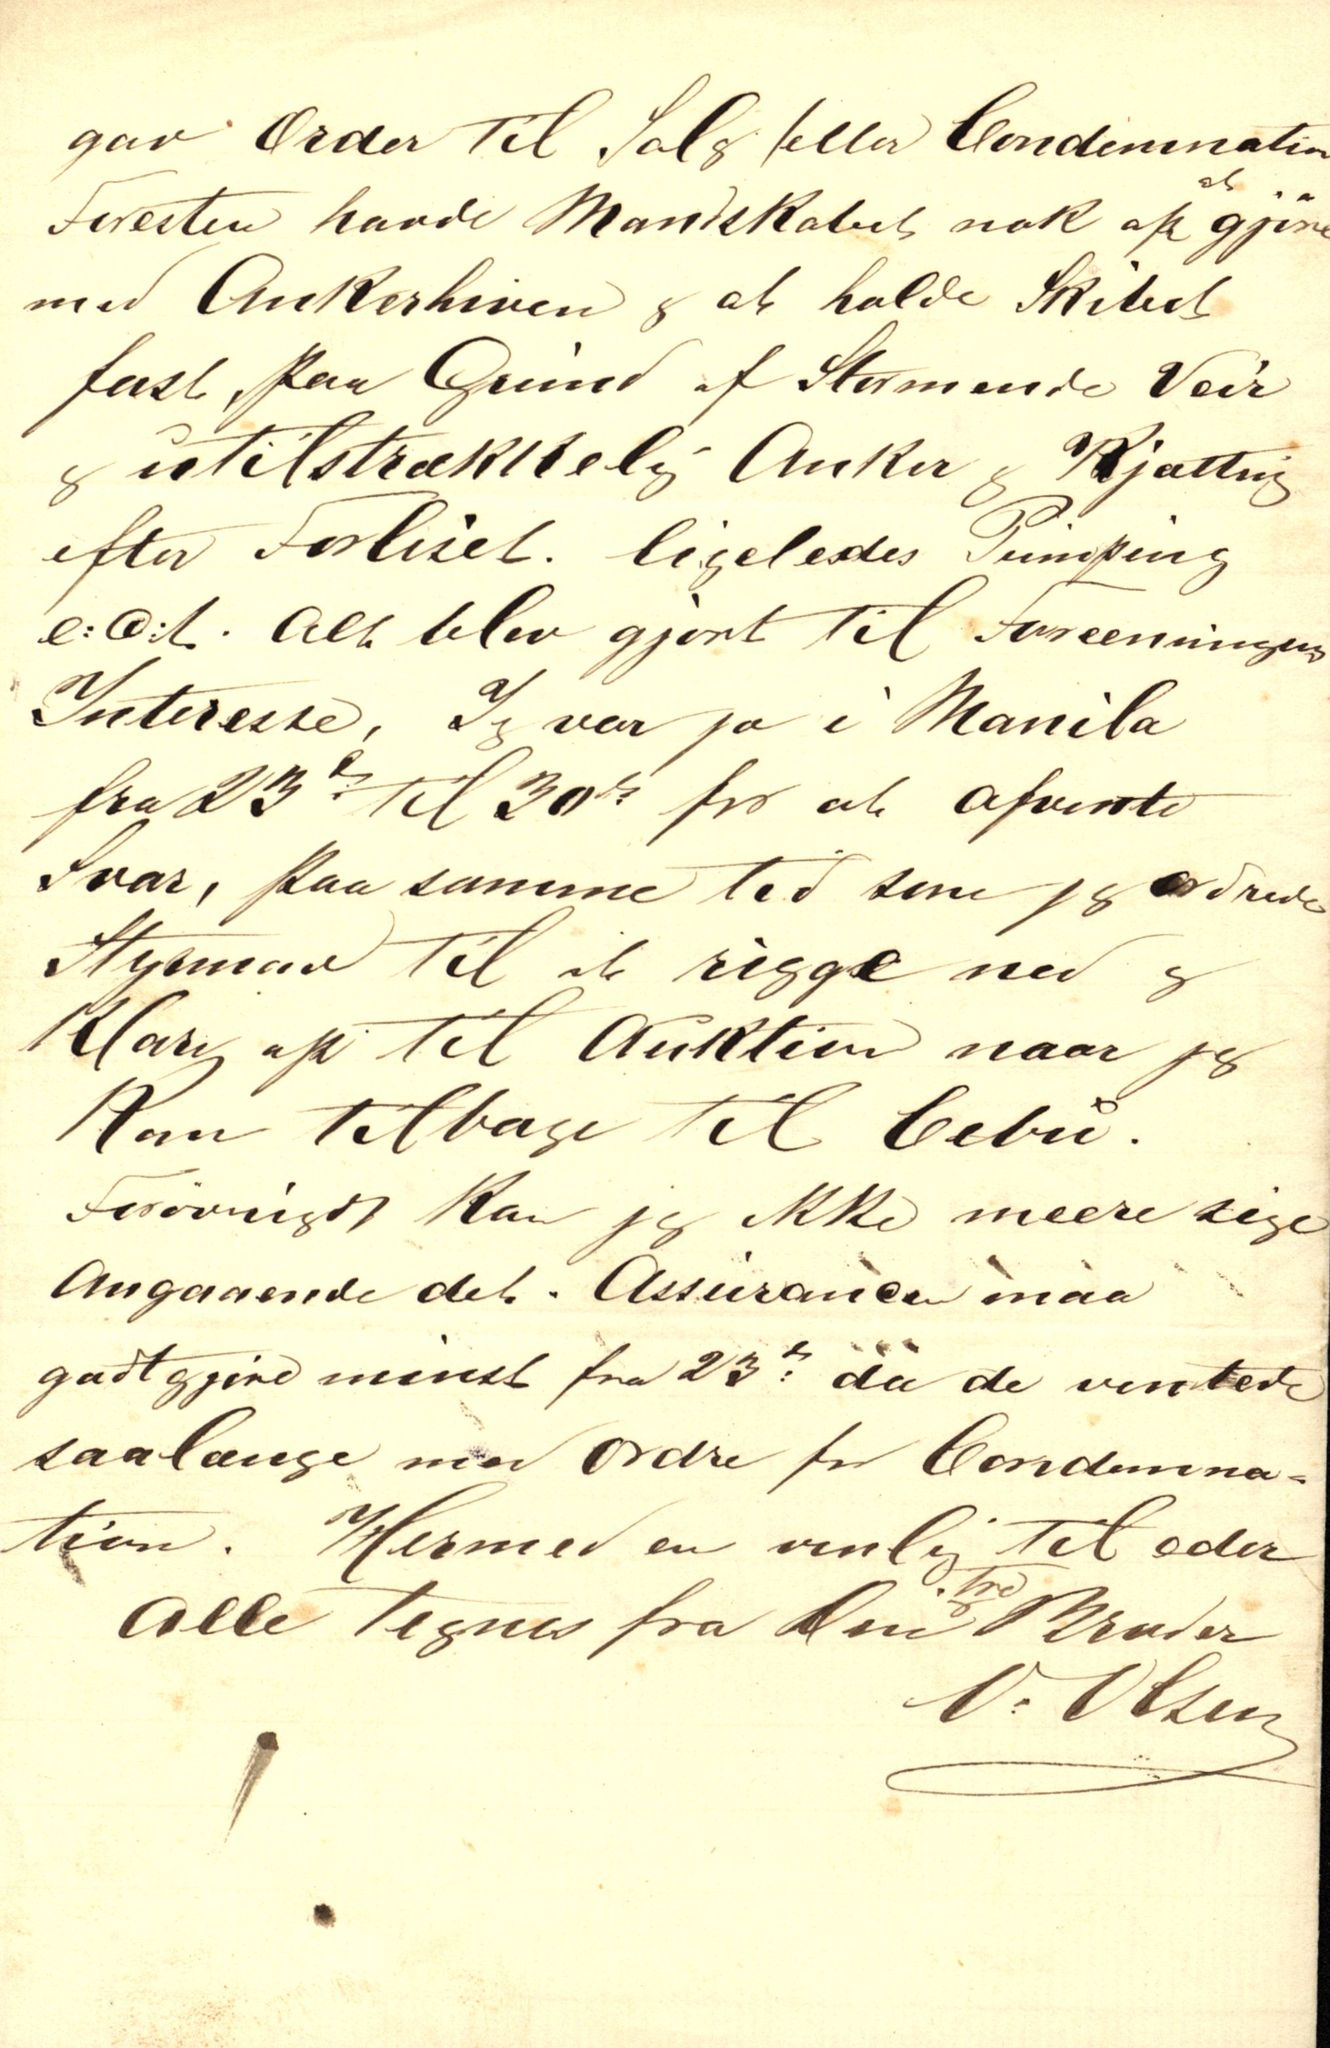 gav Order til Salg eller Condemnation
Foresten havde Mandskabet nok op at gjøre
med Ankerhiven & at holde Skibet
fast, paa Grund af Stormende Veir
& utilstrækkelig Anker & Kjætting
efter Forliset. ligeledes Pumping
e:c:t. Alt blev gjort til Foreeningens
Interesse, Jeg var jo i Manila
fra 23de til 30te for at afvente
Svar, paa samme tid som jeg ordrede
Styrman til at rigge ned &
Klarg op til Auktion naar jeg
Kom tilbage til Cebu.
Forøvrigdt Kan jeg ikke meere sige
Angaaende det. Assurancen maa
godtgjøre minst fra 23de da de ventede
saalænge med Ordre for Condemna-
tion. Hermed en venlig til eder
alle tegnes fra Din tro Broder
O. Olsen